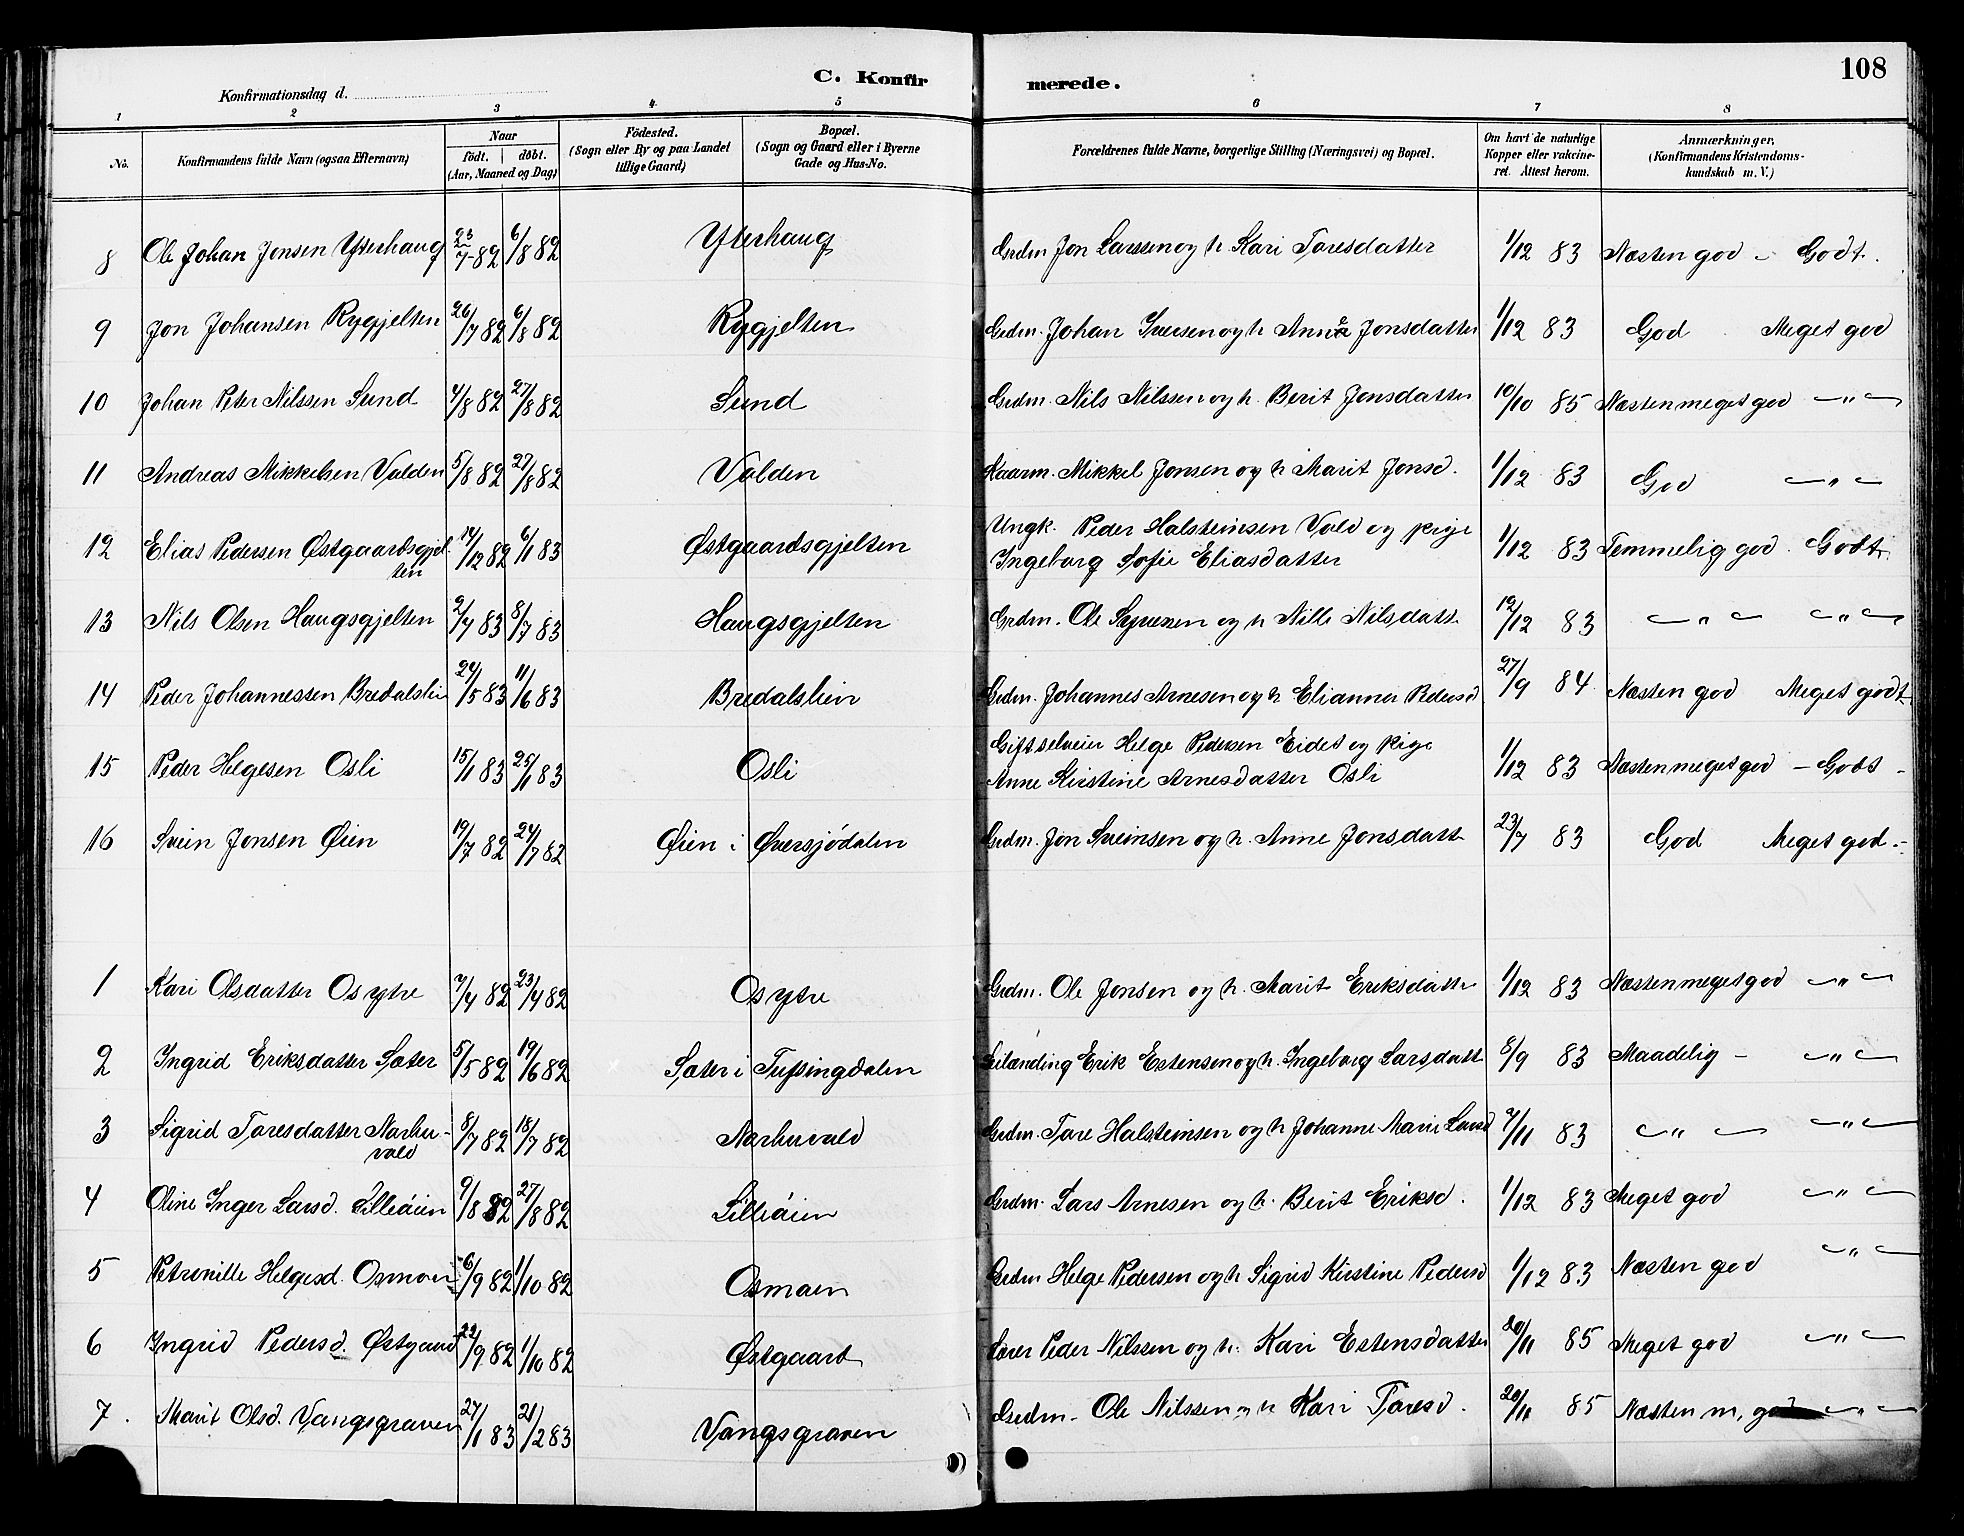 108
C. Konfirmerede.
Konfirmationsdag d.
1 2 3 4 5 6 7 8
No. Konfirmandens fulde Navn (ogsaa Efternavn) Naar født. døbt. (Aar, Maaned og Dag) Födested. (Sogn eller By og paa Landet tillige Gaard) Bopæl. (Sogn og Gaard eller i Byerne Gade og Hus-No. Forældrenes fulde Navne, borgerlige Stilling (Næringsvei) og Bopæl. Om havt de naturlige Kopper eller vakcineret. Attest herom. Anmærkninger. (Konfirmandens Kristendomskundskab m. V.)
8 Ole Johan Jonsen Ytterhaug 23/7 82 6/8 82 Ytterhaug Grdm Jon Larssen og h Kari Toresdatter 1/12 83 Næsten god - Godt.
9 Jon Johansen Rygjelten 26/7 82 6/8 82 Rygjelten Grdm. Johan Iversen og h Anne Jonsdatter 1/12 83 God Meget god
10 Johan Peter Nilssen Sund 4/8 82 27/8 82 Sund Grdm. Nils Nilssen og h. Berit Jonsdatter 10/10 85 Næsten meget god — " —
11 Andreas Mikkelsen Volden 5/8 82 27/8 82 Volden Mikkel Jonsen og h Marit Jonsd. 1/12 83 God — " —
12 Elias Pedersen Østgaardsgjelten 14/12 82 6/1 83 Østgaardsgjelten Ungk. Peder Halsteinsen Vold og pige
Ingeborg Sofie Eliasdatter 1/12 83 Temmelig god. Godt.
13 Nils Olsen Haugsgjelten 2/7 83 8/7 83 Haugsgjelten Grdm. Ole Syversen og h Nille Nilsdatt 12/12 83 — " — — " —
14 Peder Johannessen Bredalslien 24/5 83 11/6 83 Bredalslien Grdm. Johannes Arnesen og h Elianna Pedersd 27/9 84 Næsten god Meget godt
15 Peder Helgesen Osli 15/1 83 25/1 83 Osli Gift selveier Helge Pedersen Eidet og Pige
Anne Kirstine Arnesdatter Osli 1/12 83 Næsten meget god - Godt -
16 Svein Jonsen Øien 19/7 82 24/7 82 Øien i Øversjødalen Grdm. Jon Sveinsen og h. Anne Jonsdatt 23/7 83 God Meget god.-
1 Kari Olsdatter Os ytre 7/4 82 23/4 82 Os ytre Grdm. Ole Jonsen og h. Marit Eriksdatter 1/12 83 Næsten meget god — " —
2 Ingrid Eriksdatter Sæter 5/5 82 19/6 82 Sæter i Tufsingdalen Leilænding Erik Estensen og h. Ingeborg Larsdatt 8/9 83 Maadelig - — " —
3 Sigrid Toresdatter Narhuvold 8/7 82 18/7 82 Narhuvold Grdm. Tore Halsteinsen og h Johanne Marie Larsd 7/11 83 — " — — " —
4 Oline Inger Larsd. Lilleöien 9/8 82 27/8 82 Lilleöien Grdm. Lars Arnesen og h. Berit Eriksd. 1/12 83 Meget god — " —
5 Petronille Helgesd. Osmoen 6/9 82 1/10 82 Osmoen Grdm Helge Pedersen og h Sigrid Kirstine Pedersd 1/12 83 Næsten god — " —
6 Ingrid Pedersd. Østgaard 22/9 82 1/10 82 Østgaard Lærer Peder Nilssen og h. Kari Estensdatter 20/11 85 Meget god — " —
7. Marit Olsd. Vangsgraven 27/1 83 21/2 83 Vangsgraven Grdm. Ole Nilssen og h Kari Toresd. 20/11 85 Næsten m, god — " —